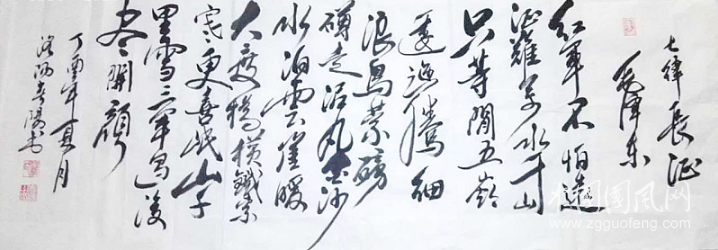 七律長征
毛澤东
红军不怕遠
征難万水千山
只等閒五嶺
逶迤腾细
浪烏蒙磅
礴走泥丸金沙
水泊雲崖暖
大度橋横鐵索
寒更喜岷山千
里雪三軍過後
尽開顏
丁酉年夏月
洛阳
国国风网
www.zgguofeng.com